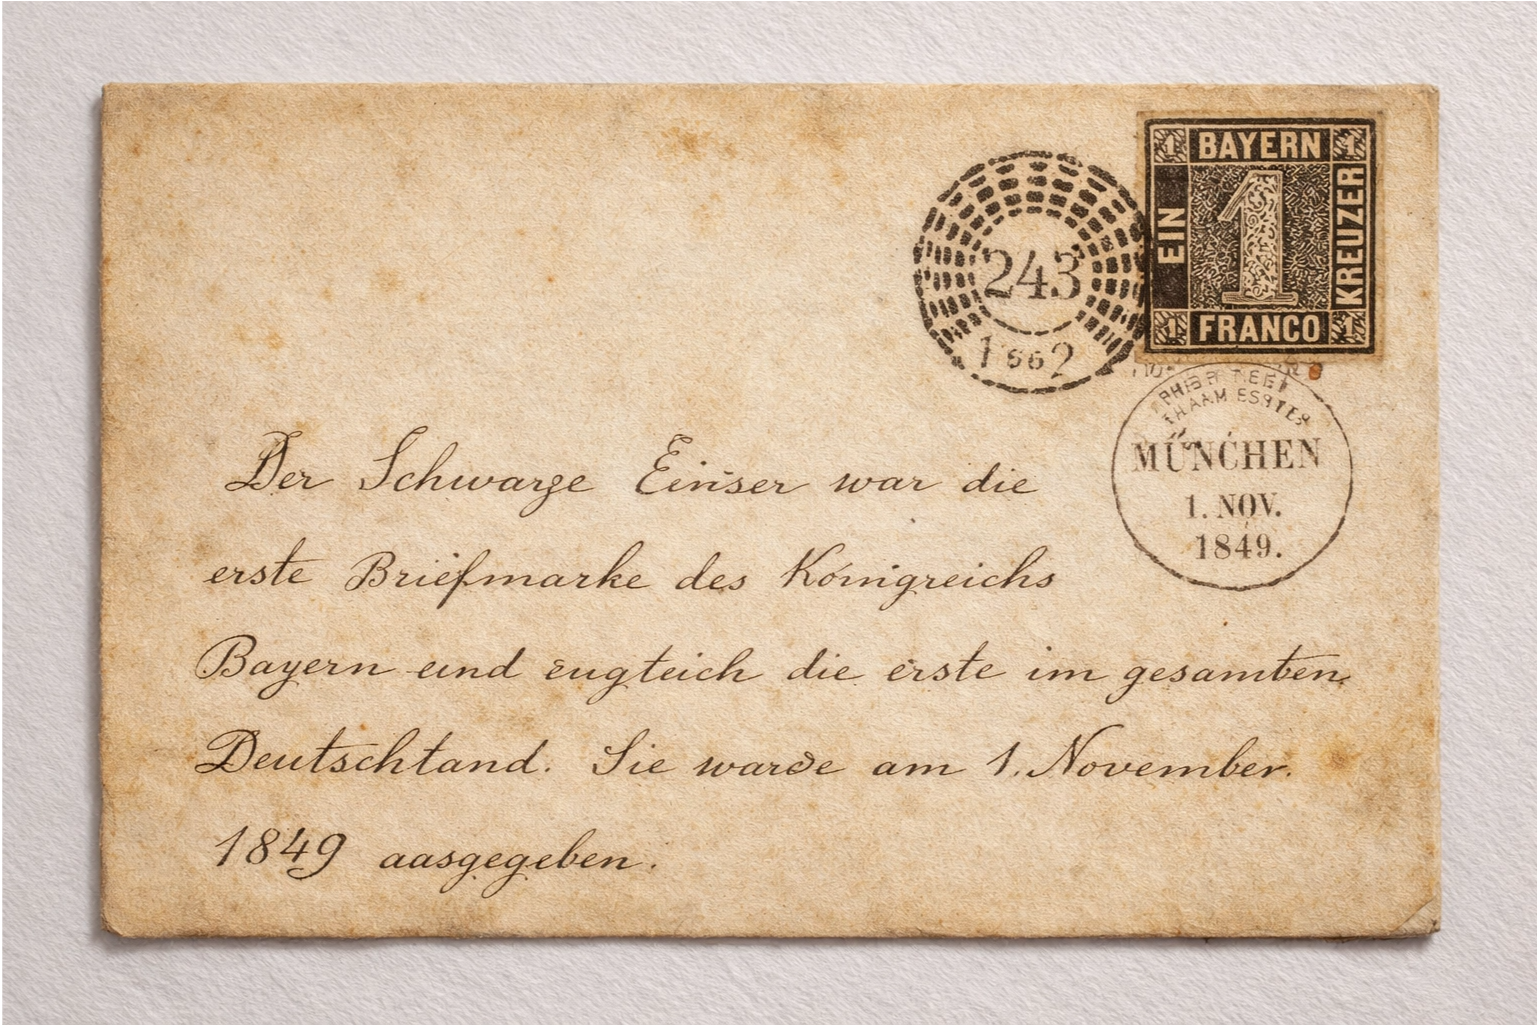 BAYERN
EIN
1
KREUZER
FRANCO
1
1
1
1
243
1662
MÜNCHEN
1. NOV.
1849.
Der Schwarze Einser war die
erste Briefmarke des Königreichs
Bayern und eugteich die erste im gesamten
Deutschtand. Sie warde am 1. November.
1849 aasgegeben.